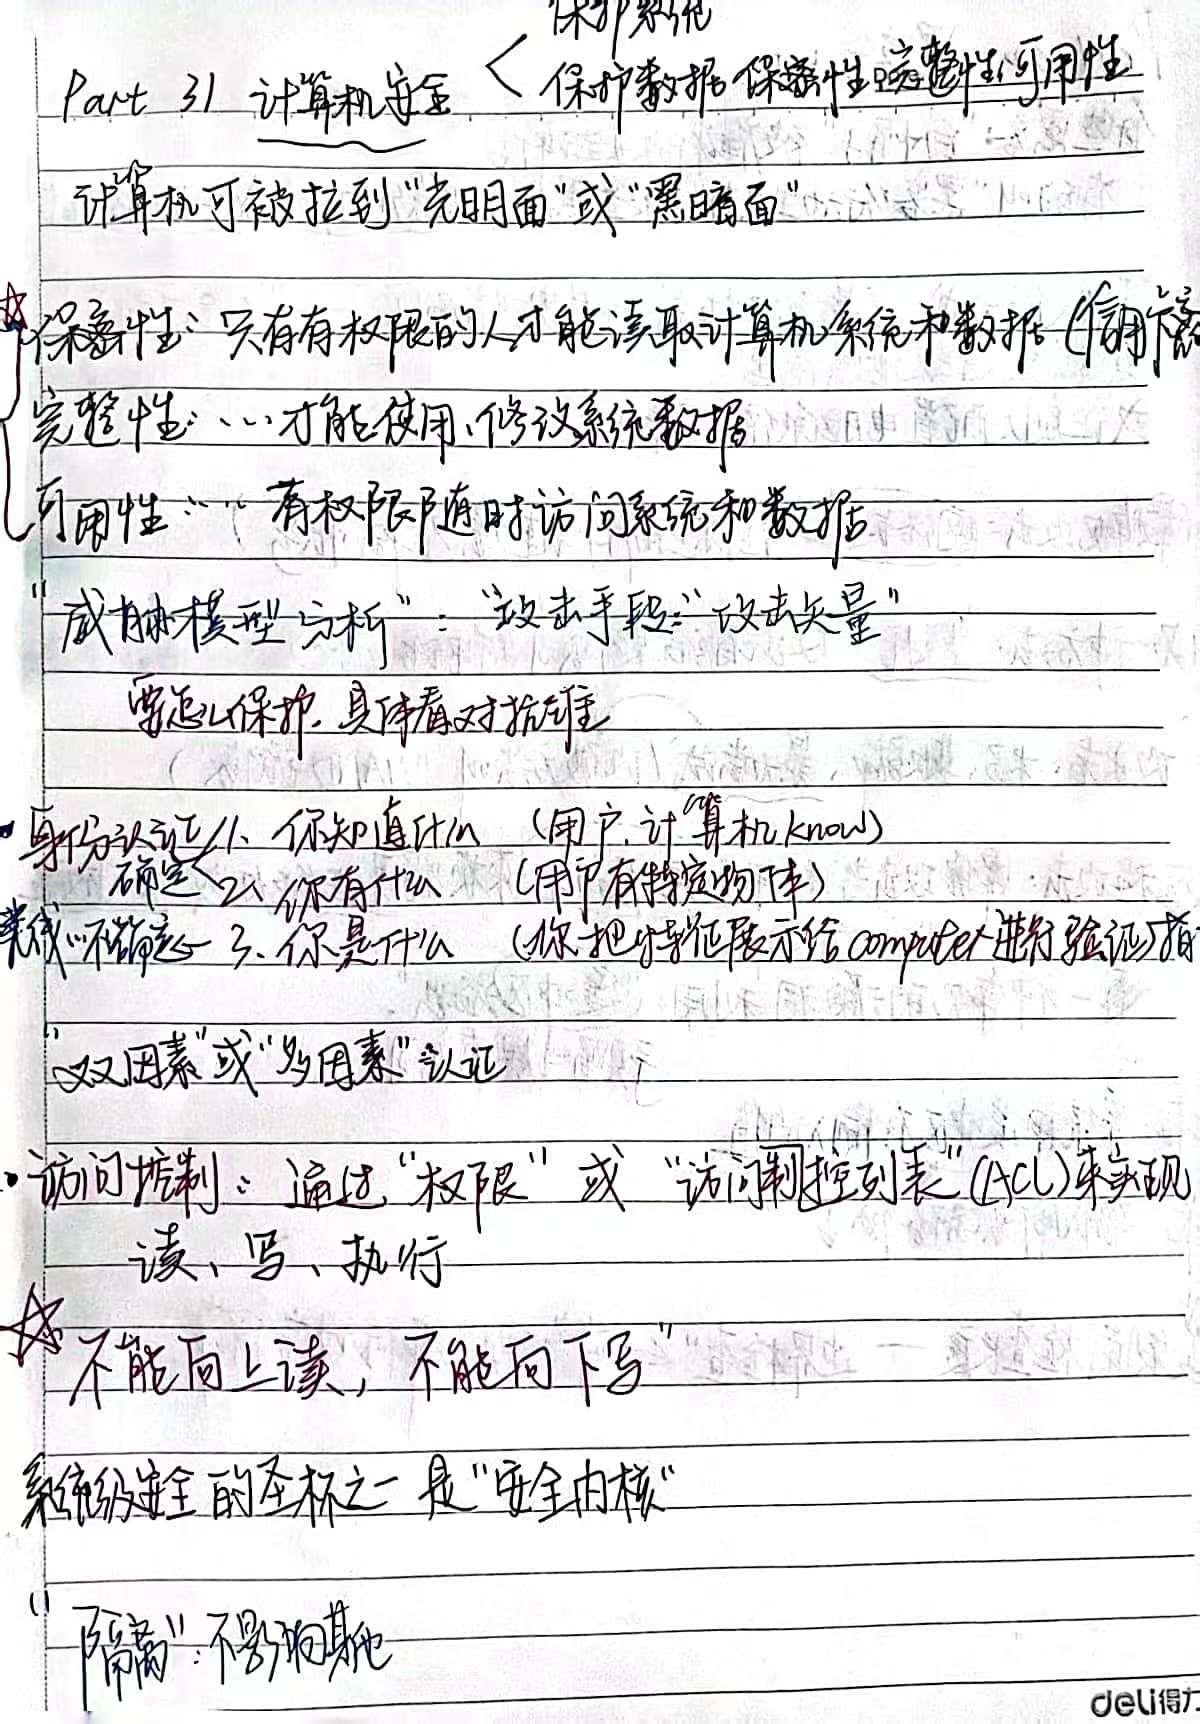 保护系统
Part 31 计算机安全 < 保护数据 保密性 完整性 可用性
计算机可被拉到"光明面"或"黑暗面"
☆保密性:只有有权限的人才能读取计算机系统和数据(信用卡
完整性:…才能使用、修改系统数据
可用性:… 有权限随时访问系统和数据
"威胁模型分析":"攻击手段:"攻击矢量"
要怎么保护.具体看对抗谁
·身份认证 1、你知道什么 (用户.计算机know)
确定< 2、你有什么 (用户有特定物体)
不确定 3、你是什么 (你把特征展示给computer进行验证)指
"双因素"或"多因素"认证
·访问控制:通过"权限"或"访问制控列表"(ACL)来实现
读、写、执行
☆不能向上读,不能向下写"
系统级安全的圣杯之一是"安全内核"
"隔离":不影响其他
deli得力